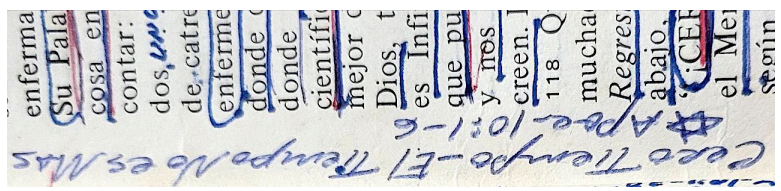 enferma
Su Pala
cosa en
contar:
dos, uno
de catre
enferme
donde
donde
científic
mejor
Dios, t
es Infi
que pu
y nos
creen.
118 Q
mucha
Regres
abajo,
“¡CER
el Men
según
Cero Tiempo-El Tiempo No es Mas
☆ Apoc-10:1-6